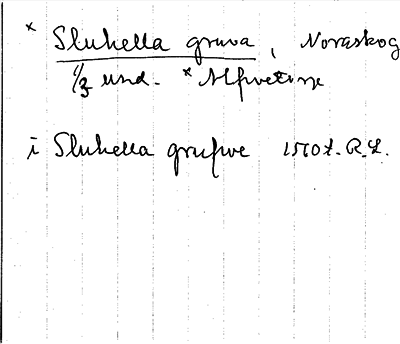 × Sluhella gruva, Noraskog
1/3 und. × Alfvetorp
i Sluhella grufwe 1570 t. R.L.